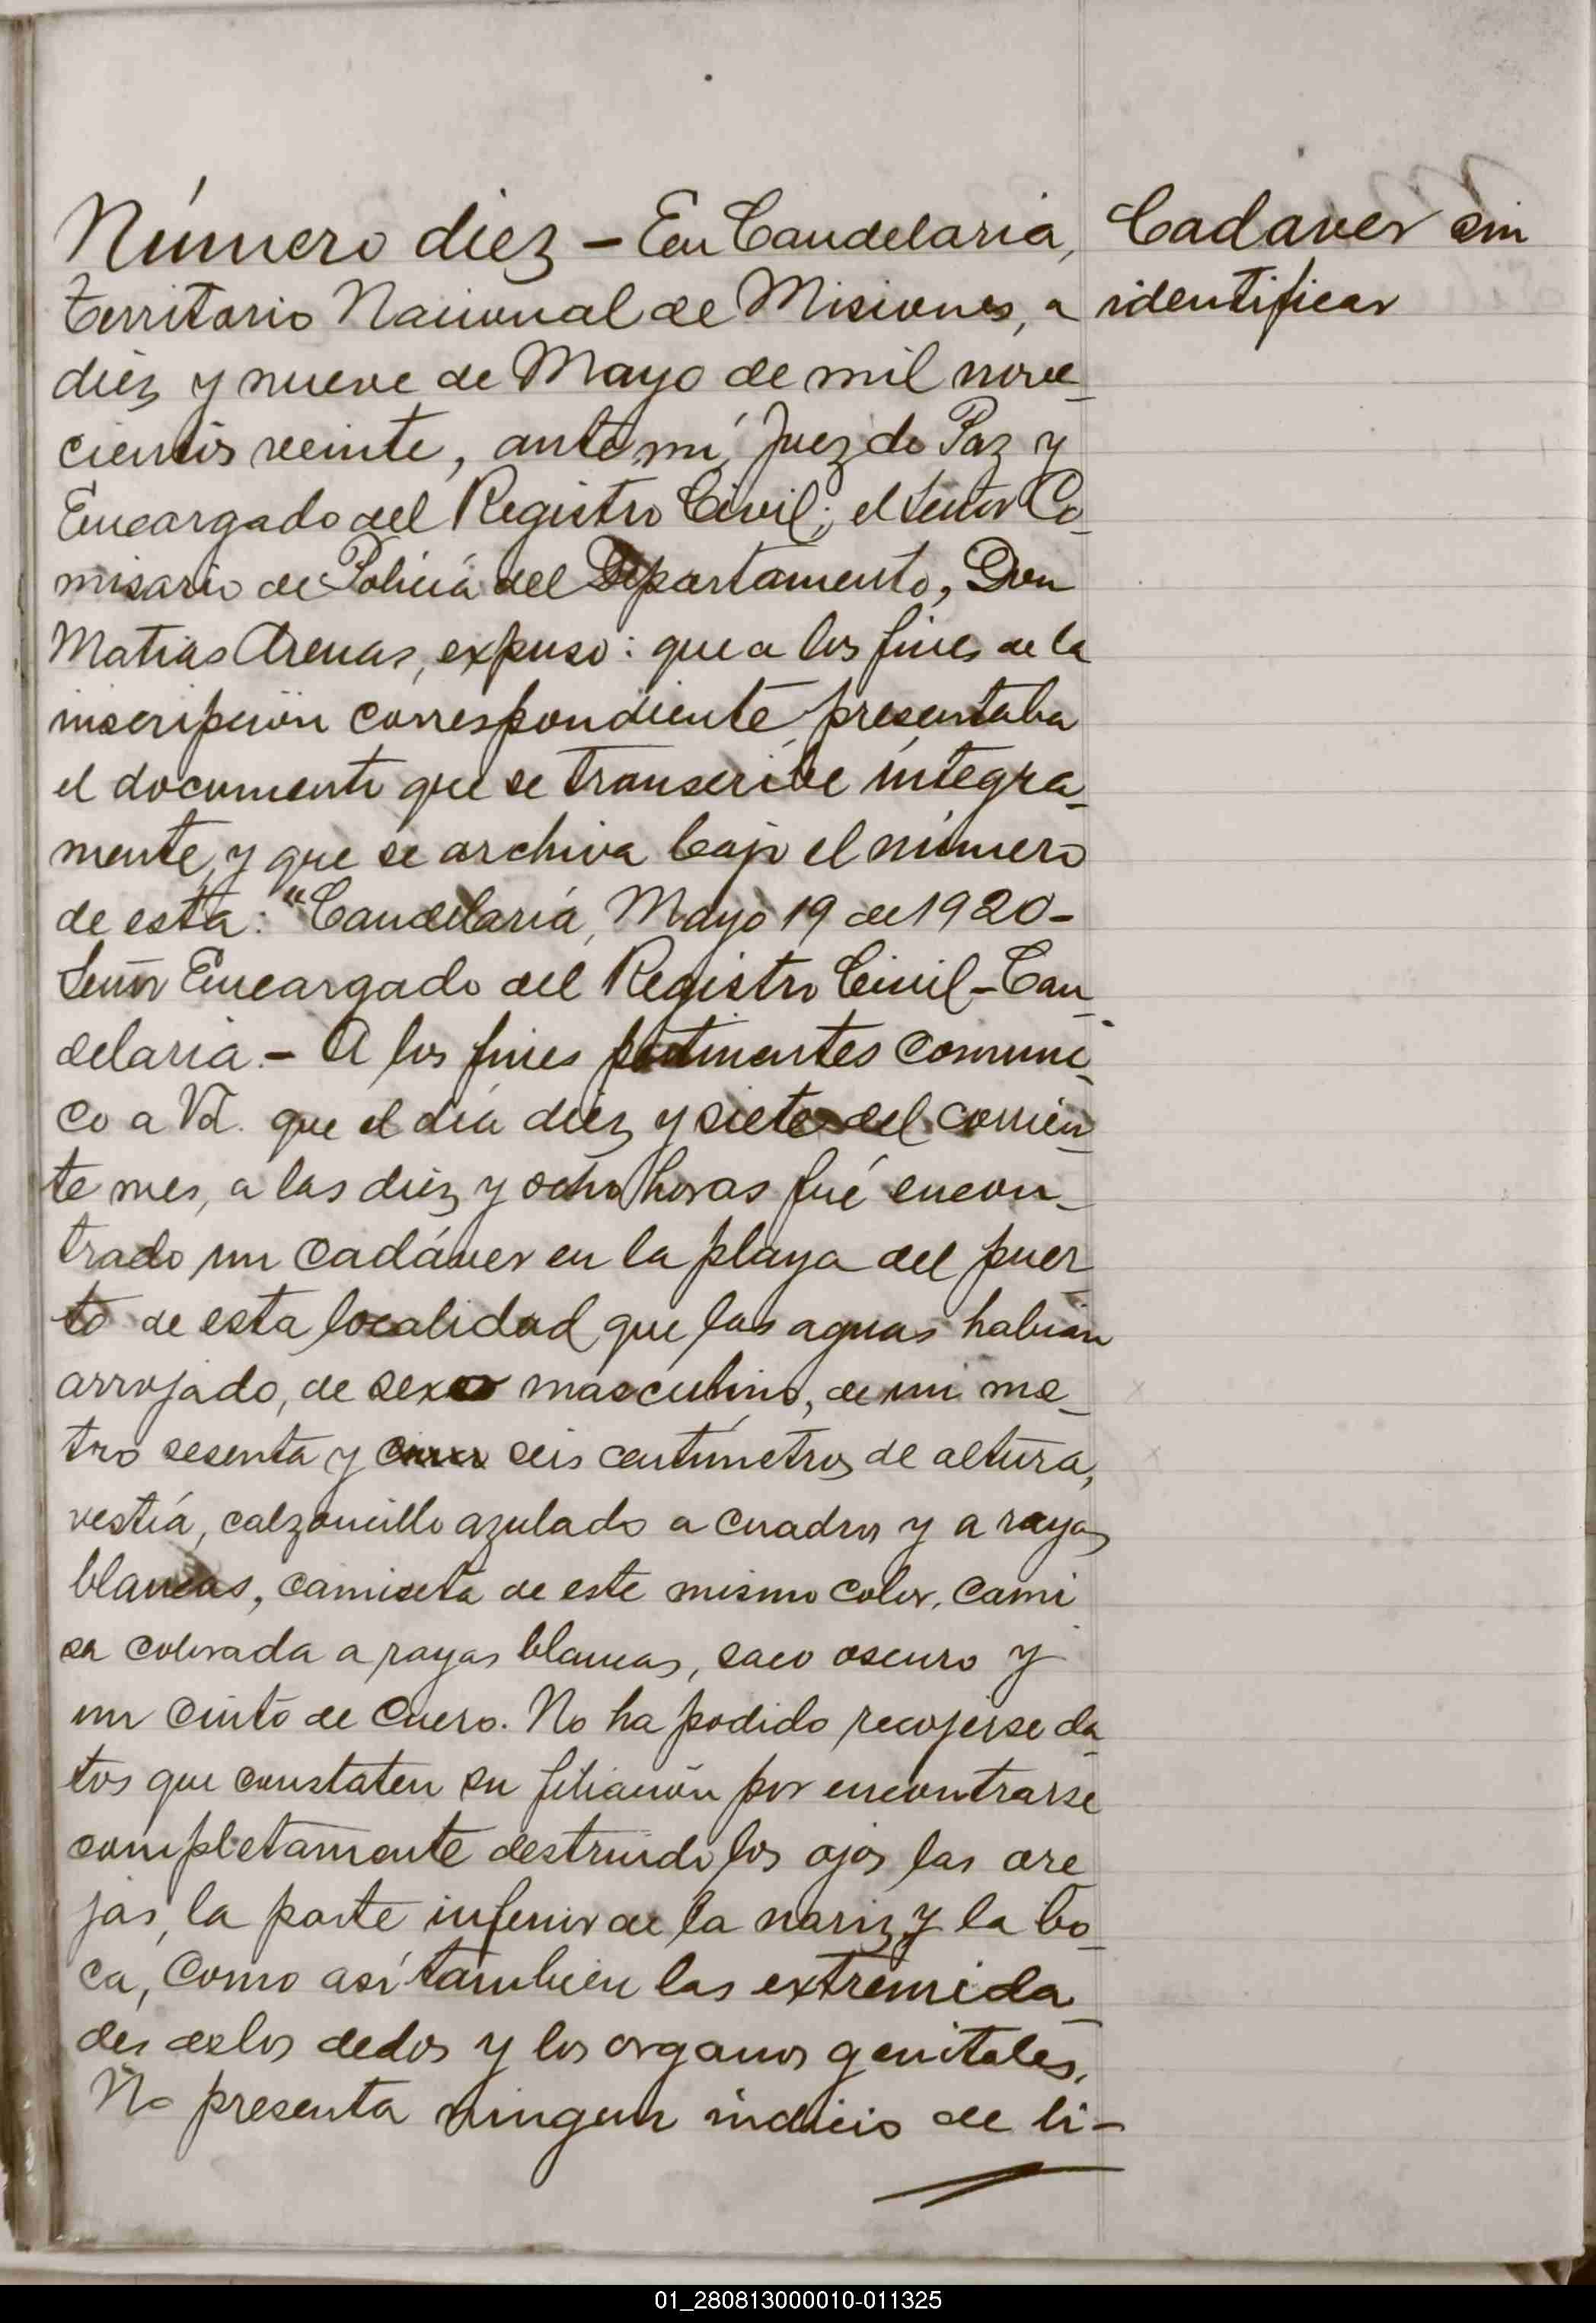 Número diez - En Candelaria,
territorio Nacional de Misiones, a
diez y nueve de Mayo de mil nove_
cientos veinte, ante mí, Juez de Paz y
Encargado del Registro Civil; el Señor Co_
misario de Policía del Departamento, Don
Matias Arenas, expuso: que a los fines de la
inscripción correspondiente presentaba
el documento que se transcribe integra_
mente, y que se archiva bajo el número
de esta: "Candelaria, Mayo 19 de 1920-
Señor Encargado del Registro Civil-Can_
delaria.- A los fines pertinentes comuni_
co a Vd. que el día diez y siete del corrien_
te mes, a las diez y ocho horas fué encon_
trado un cadáver en la playa del puer_
to de esta localidad que las aguas habian
arrojado, de sexo masculino, de un me_
tro sesenta y seis centímetros de altura,
vestía, calzoncillo azulado a cuadros y a rayas
blancas, camiseta de este mismo color, cami
sa colorada a rayas blancas, saco oscuro y
un cinto de cuero. No ha podido recojerse da_
tos que constaten su filiación por encontrarse
completamente destruido los ojos las ore_
jas, la parte inferior de la nariz y la bo_
ca, como así tambien las extremida_
des de los dedos y los organos genitales.
No presenta ningun indicio de li-
Cadaver sin
identificar
01_280813000010-011325